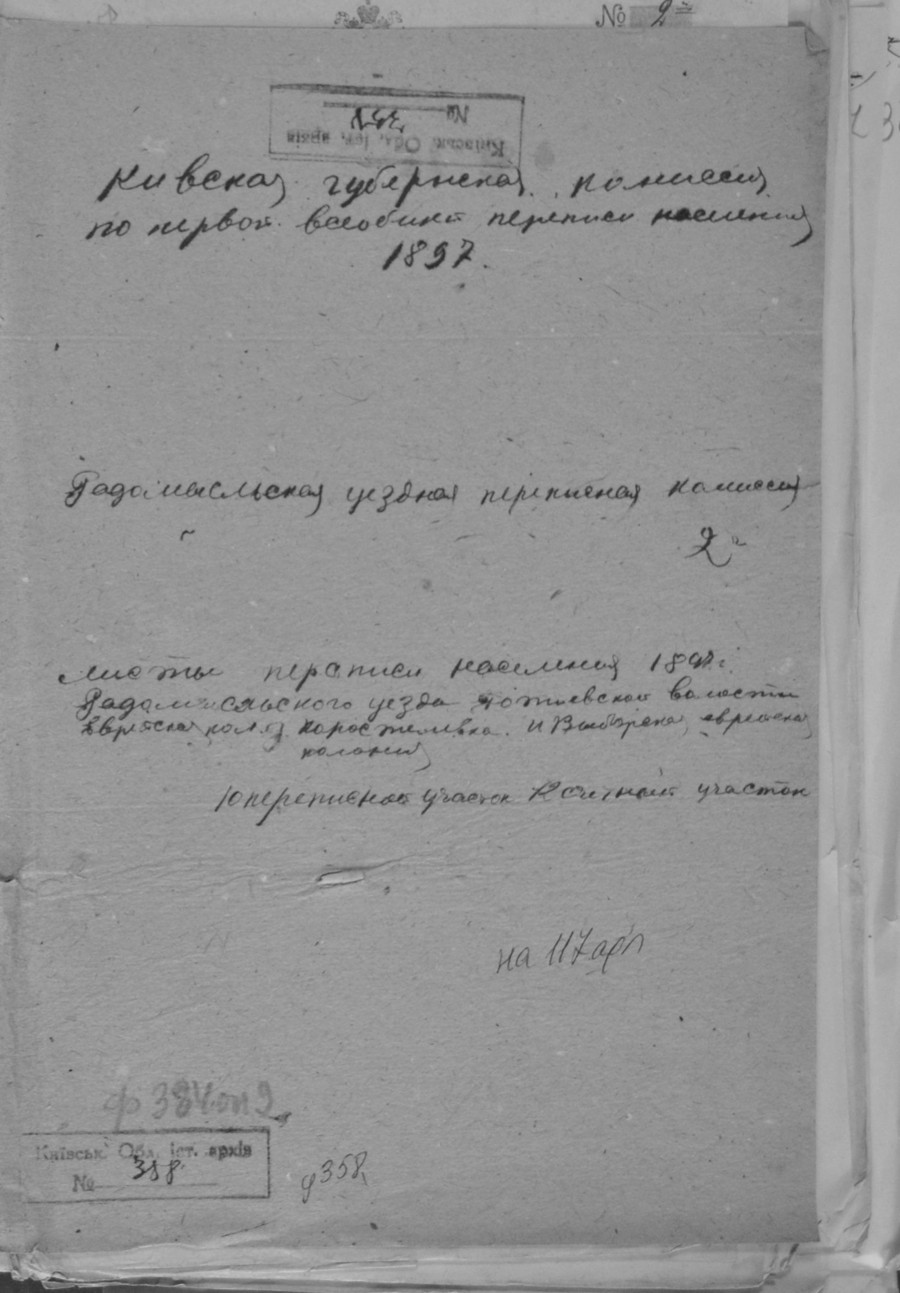 № 2
Київськ. Обл. іст. архів
№
Кивская губернская комиссия
по первой всеобщей переписи населения
1897.
Радомысльская уездная переписная комиссия
2
Листы переписи населения 1897 г.
Радомысльского уезда Потиевской волости
Еврейская кол. Коростышевка. и еврейская
колония
10 переписной участок счетный участок
на 117 арк
ф 384 оп 9
Київськ. Обл. іст. архів
№ 358
д 358